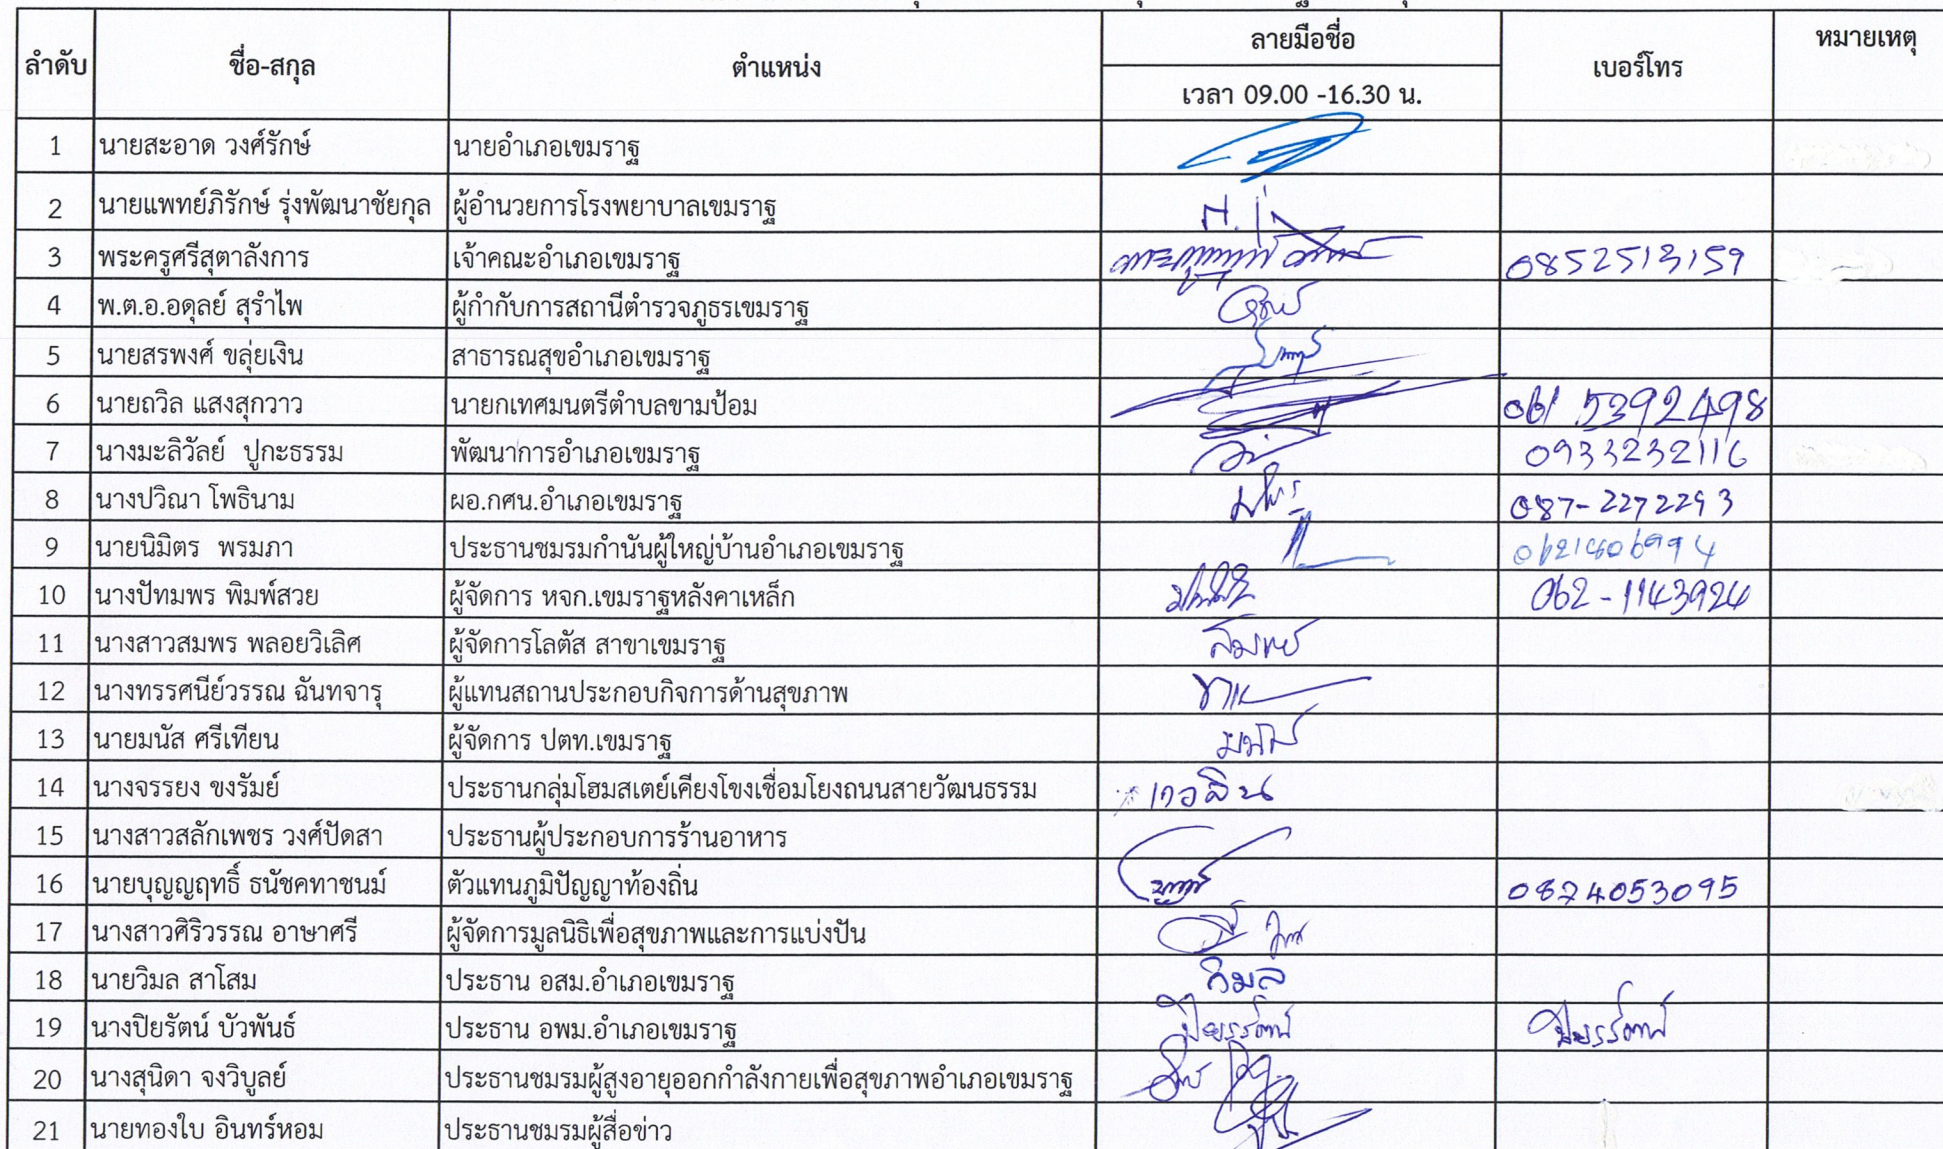 ลำดับ ชื่อ-สกุล ตำแหน่ง ลายมือชื่อ เบอร์โทร หมายเหตุ
เวลา 09.00 -16.30 น.
1 นายสะอาด วงศ์รักษ์ นายอำเภอเขมราฐ
2 นายแพทย์ภิรักษ์ รุ่งพัฒนาชัยกุล ผู้อำนวยการโรงพยาบาลเขมราฐ
3 พระครูศรีสุตาลังการ เจ้าคณะอำเภอเขมราฐ 0852513159
4 พ.ต.อ.อดุลย์ สุรำไพ ผู้กำกับการสถานีตำรวจภูธรเขมราฐ
5 นายสรพงศ์ ขลุ่ยเงิน สาธารณสุขอำเภอเขมราฐ
6 นายถวิล แสงสุกวาว นายกเทศมนตรีตำบลขามป้อม 061 5392498
7 นางมะลิวัลย์ ปูกะธรรม พัฒนาการอำเภอเขมราฐ 0933232116
8 นางปวิณา โพธินาม ผอ.กศน.อำเภอเขมราฐ 087-2272293
9 นายนิมิตร พรมภา ประธานชมรมกำนันผู้ใหญ่บ้านอำเภอเขมราฐ
10 นางปัทมพร พิมพ์สวย ผู้จัดการ หจก.เขมราฐหลังคาเหล็ก 062-1143924
11 นางสาวสมพร พลอยวิเลิศ ผู้จัดการโลตัส สาขาเขมราฐ สมพร
12 นางทรรศนีย์วรรณ ฉันทจารุ ผู้แทนสถานประกอบกิจการด้านสุขภาพ
13 นายมนัส ศรีเทียน ผู้จัดการ ปตท.เขมราฐ มนัส
14 นางจรรยง ขงรัมย์ ประธานกลุ่มโฮมสเตย์เคียงโขงเชื่อมโยงถนนสายวัฒนธรรม
15 นางสาวสลักเพชร วงศ์ปัดสา ประธานผู้ประกอบการร้านอาหาร
16 นายบุญญฤทธิ์ ธนัชคทาชนม์ ตัวแทนภูมิปัญญาท้องถิ่น 0874053095
17 นางสาวศิริวรรณ อาษาศรี ผู้จัดการมูลนิธิเพื่อสุขภาพและการแบ่งปัน
18 นายวิมล สาโสม ประธาน อสม.อำเภอเขมราฐ วิมล
19 นางปิยรัตน์ บัวพันธ์ ประธาน อพม.อำเภอเขมราฐ ปิยะรัตน์ ปิยะรัตน์
20 นางสุนิดา จงวิบูลย์ ประธานชมรมผู้สูงอายุออกกำลังกายเพื่อสุขภาพอำเภอเขมราฐ
21 นายทองใบ อินทร์หอม ประธานชมรมผู้สื่อข่าว